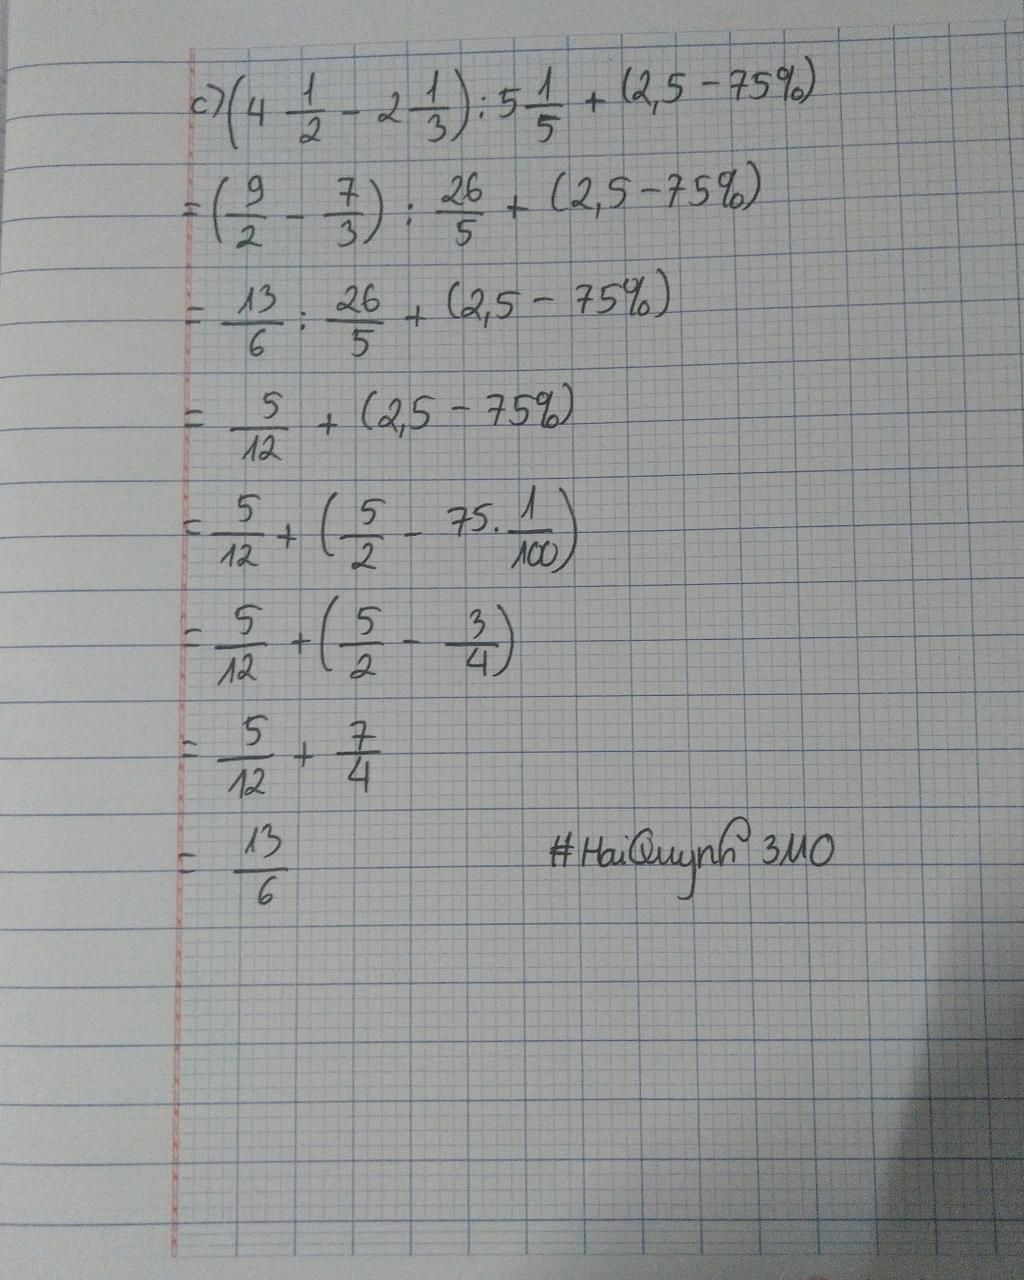 c) (4 1/2 - 2 1/3) : 5 1/5 + (2,5 - 75%)
= (9/2 - 7/3) : 26/5 + (2,5 - 75%)
= 13/6 : 26/5 + (2,5 - 75%)
= 5/12 + (2,5 - 75%)
= 5/12 + (5/2 - 75. 1/100)
= 5/12 + (5/2 - 3/4)
= 5/12 + 7/4
= 13/6
#HaiQuynh 3110